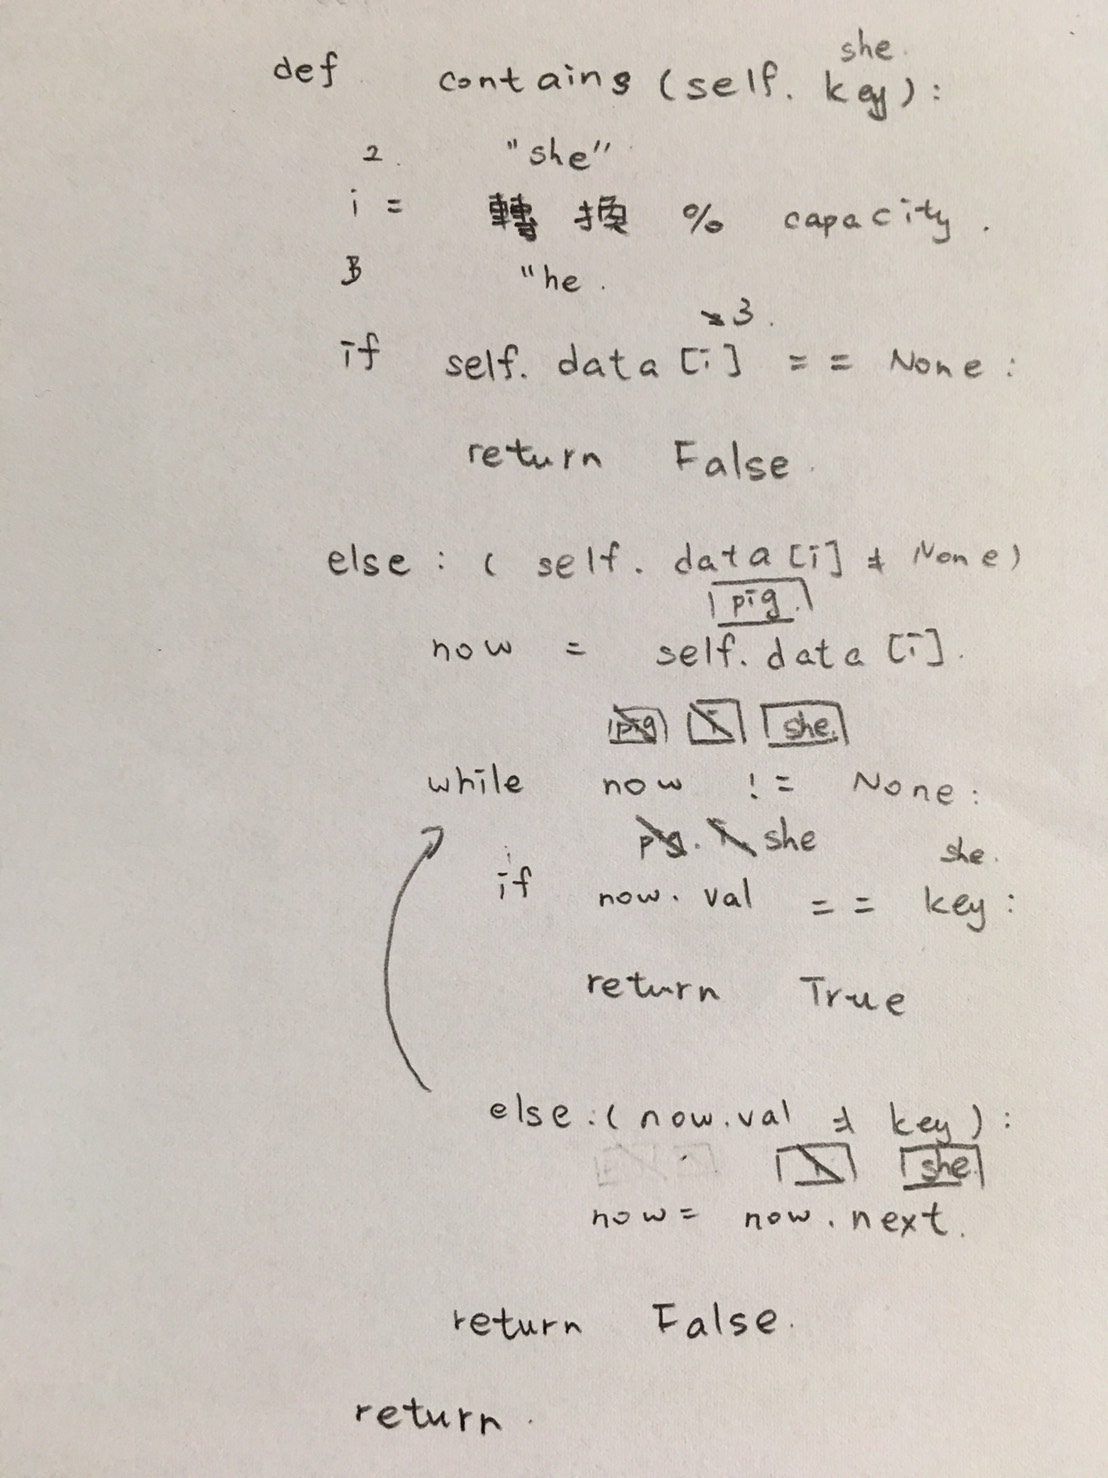 she.
def contains (self. key):
2. "she"
i = 轉換 % capacity.
B "he.
3.
if self. data [i] == None:
return False.
else: ( self. data [i] ≠ None)
pig.
now = self. data [i].
pig i she.
while now != None:
pig. i she she.
if now. val == key:
return True
else:( now.val ≠ key ):
i she
now = now.next.
return False.
return.